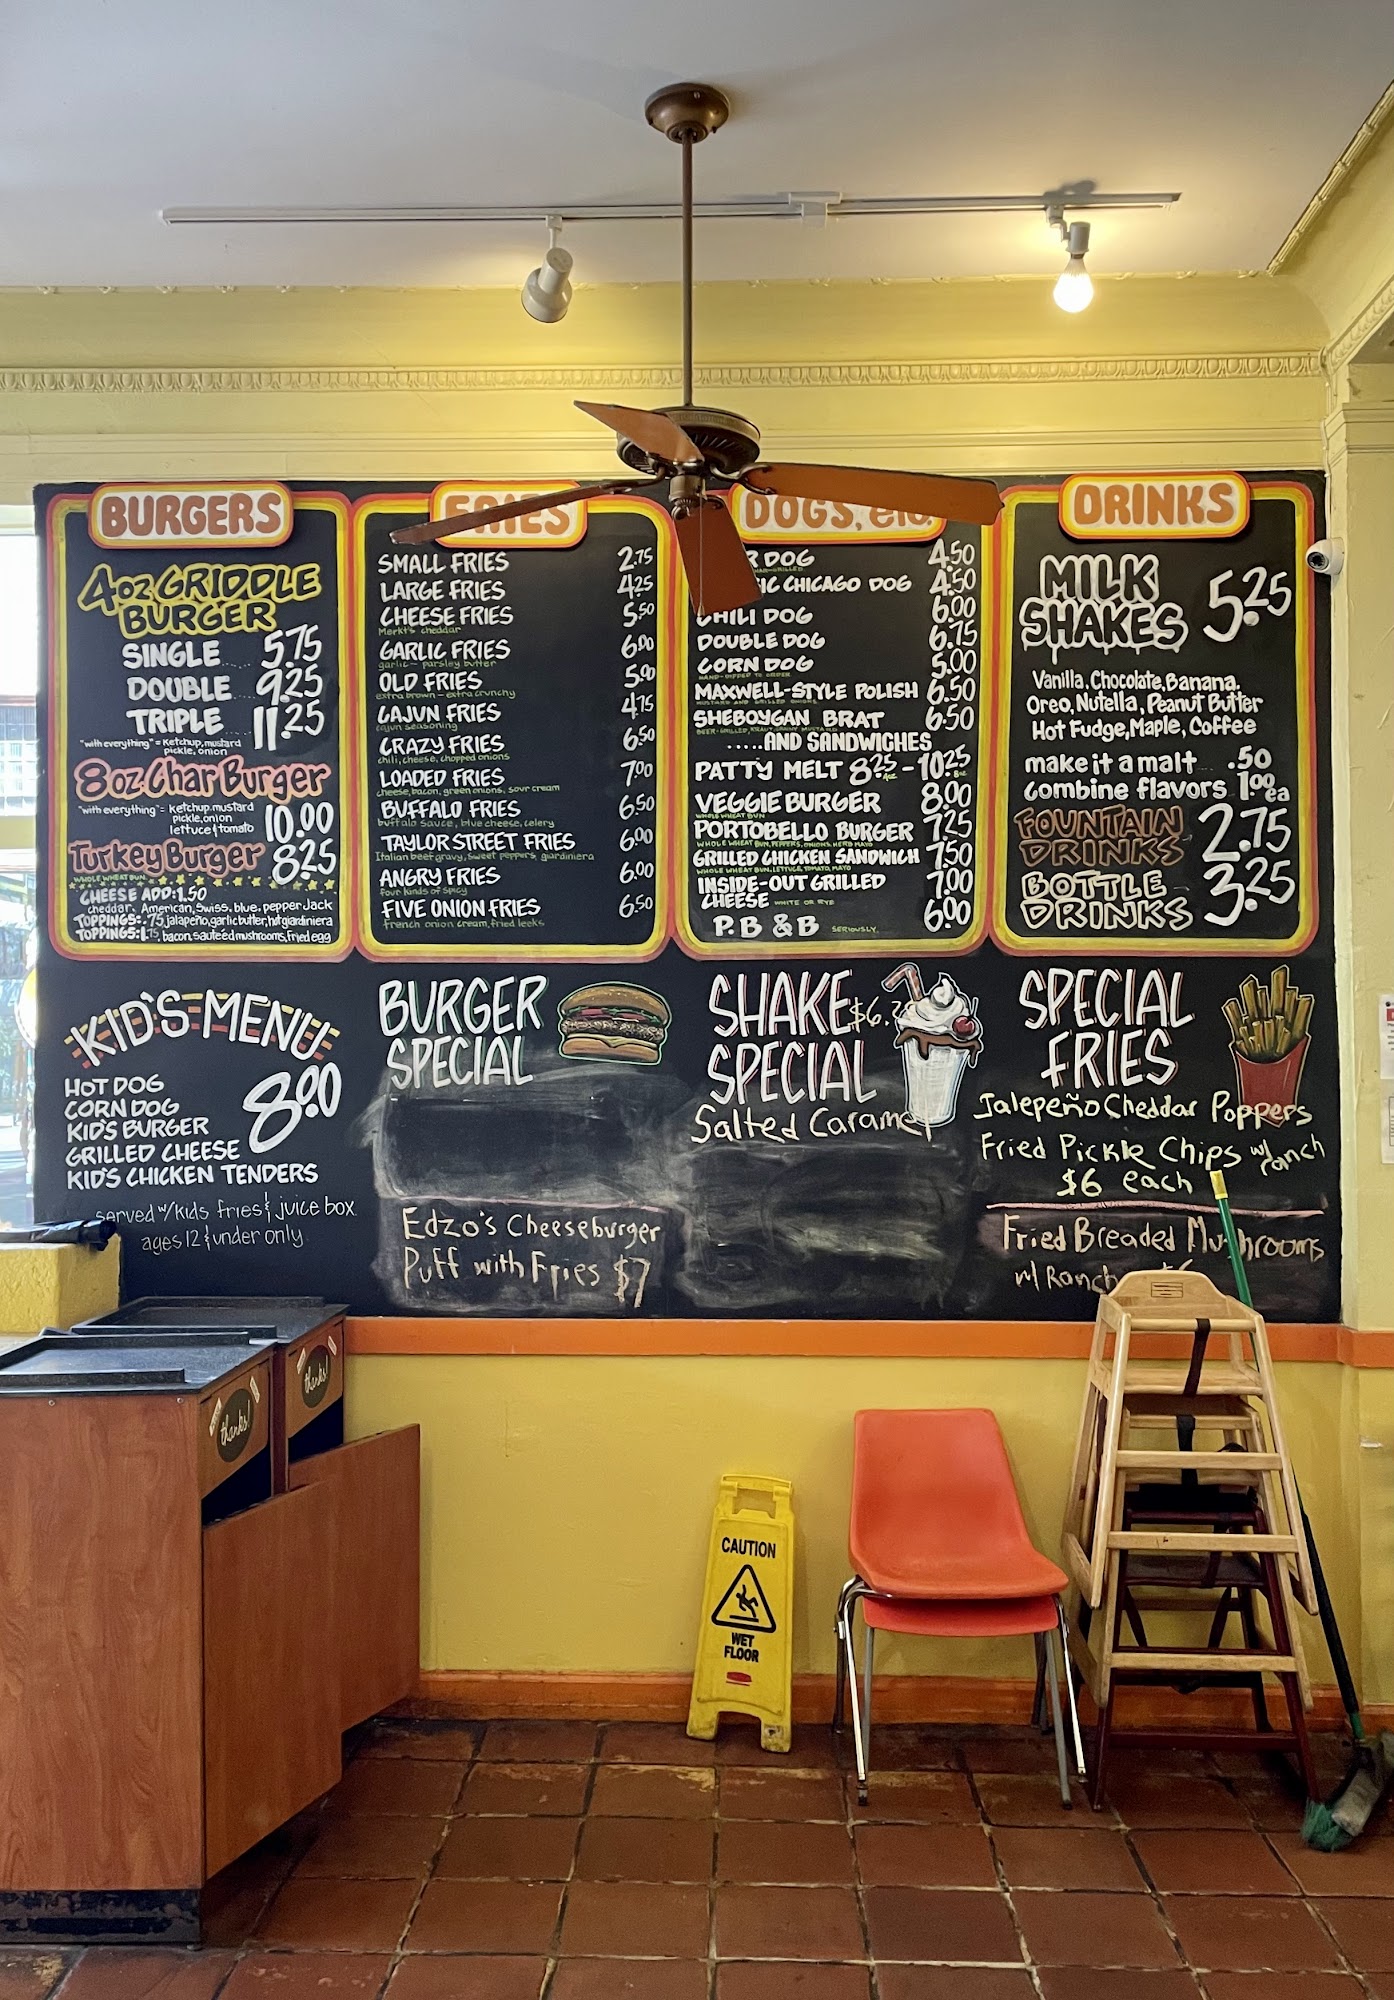 BURGERS
4oz GRIDDLE
BURGER
SINGLE 5.75
DOUBLE 9.25
TRIPLE 11.25
"with everything" = Ketchup, mustard
pickle, onion
8oz Char Burger
"with everything" = Ketchup, mustard
pickle, onion
lettuce & tomato 10.00
Turkey Burger 8.25
WHOLE WHEAT BUN
CHEESE ADD: 1.50
cheddar, American, Swiss, blue, pepper Jack
TOPPINGS: .75, jalapeño, garlic butter, hot giardiniera
TOPPINGS: 1.75, bacon, sauteed mushrooms, fried egg
FRIES
SMALL FRIES 2.75
LARGE FRIES 4.25
CHEESE FRIES 5.50
Merkt's cheddar
GARLIC FRIES 6.00
garlic - parsley butter
OLD FRIES 5.00
extra brown - extra crunchy
CAJUN FRIES 4.75
cajun seasoning
CRAZY FRIES 6.50
chili, cheese, chopped onions
LOADED FRIES 7.00
cheese, bacon, green onions, sour cream
BUFFALO FRIES 6.50
buffalo sauce, blue cheese, celery
TAYLOR STREET FRIES 6.00
Italian beef gravy, sweet peppers, giardiniera
ANGRY FRIES 6.00
four kinds of spicy
FIVE ONION FRIES 6.50
french onion cream, fried leeks
DOGS, etc.
DOG 4.50
CHICAGO DOG 4.50
CHILI DOG 6.00
DOUBLE DOG 6.75
CORN DOG 5.00
HAND-DIPPED TO ORDER
MAXWELL-STYLE POLISH 6.50
MUSTARD AND GRILLED ONIONS
SHEBOYGAN BRAT 6.50
BEER-GRILLED, KRAUT, MUSTARD
.....AND SANDWICHES
PATTY MELT 8.25 - 10.25
4oz 8oz
VEGGIE BURGER 8.00
WHOLE WHEAT BUN
PORTOBELLO BURGER 7.25
WHOLE WHEAT BUN, PEPPERS, ONIONS, HERB MAYO
GRILLED CHICKEN SANDWICH 7.50
WHOLE WHEAT BUN, LETTUCE, TOMATO, MAYO
INSIDE-OUT GRILLED
CHEESE WHITE OR RYE 7.00
P.B & B SERIOUSLY. 6.00
DRINKS
MILK
SHAKES 5.25
Vanilla, Chocolate, Banana,
Oreo, Nutella, Peanut Butter
Hot Fudge, Maple, Coffee
make it a malt .50
combine flavors 1.00 ea
FOUNTAIN
DRINKS 2.75
BOTTLE
DRINKS 3.25
KID'S MENU
8.00
HOT DOG
CORN DOG
KID'S BURGER
GRILLED CHEESE
KID'S CHICKEN TENDERS
served w/ kids fries & juice box
ages 12 & under only
BURGER
SPECIAL
Edzo's Cheeseburger
Puff with Fries $7
SHAKE
SPECIAL
Salted Caramel
SPECIAL
FRIES
Jalepeño Cheddar Poppers
Fried Pickle Chips w/ ranch
$6 each
Fried Breaded Mushrooms
w/ Ranch
thanks!
thanks!
CAUTION
WET
FLOOR